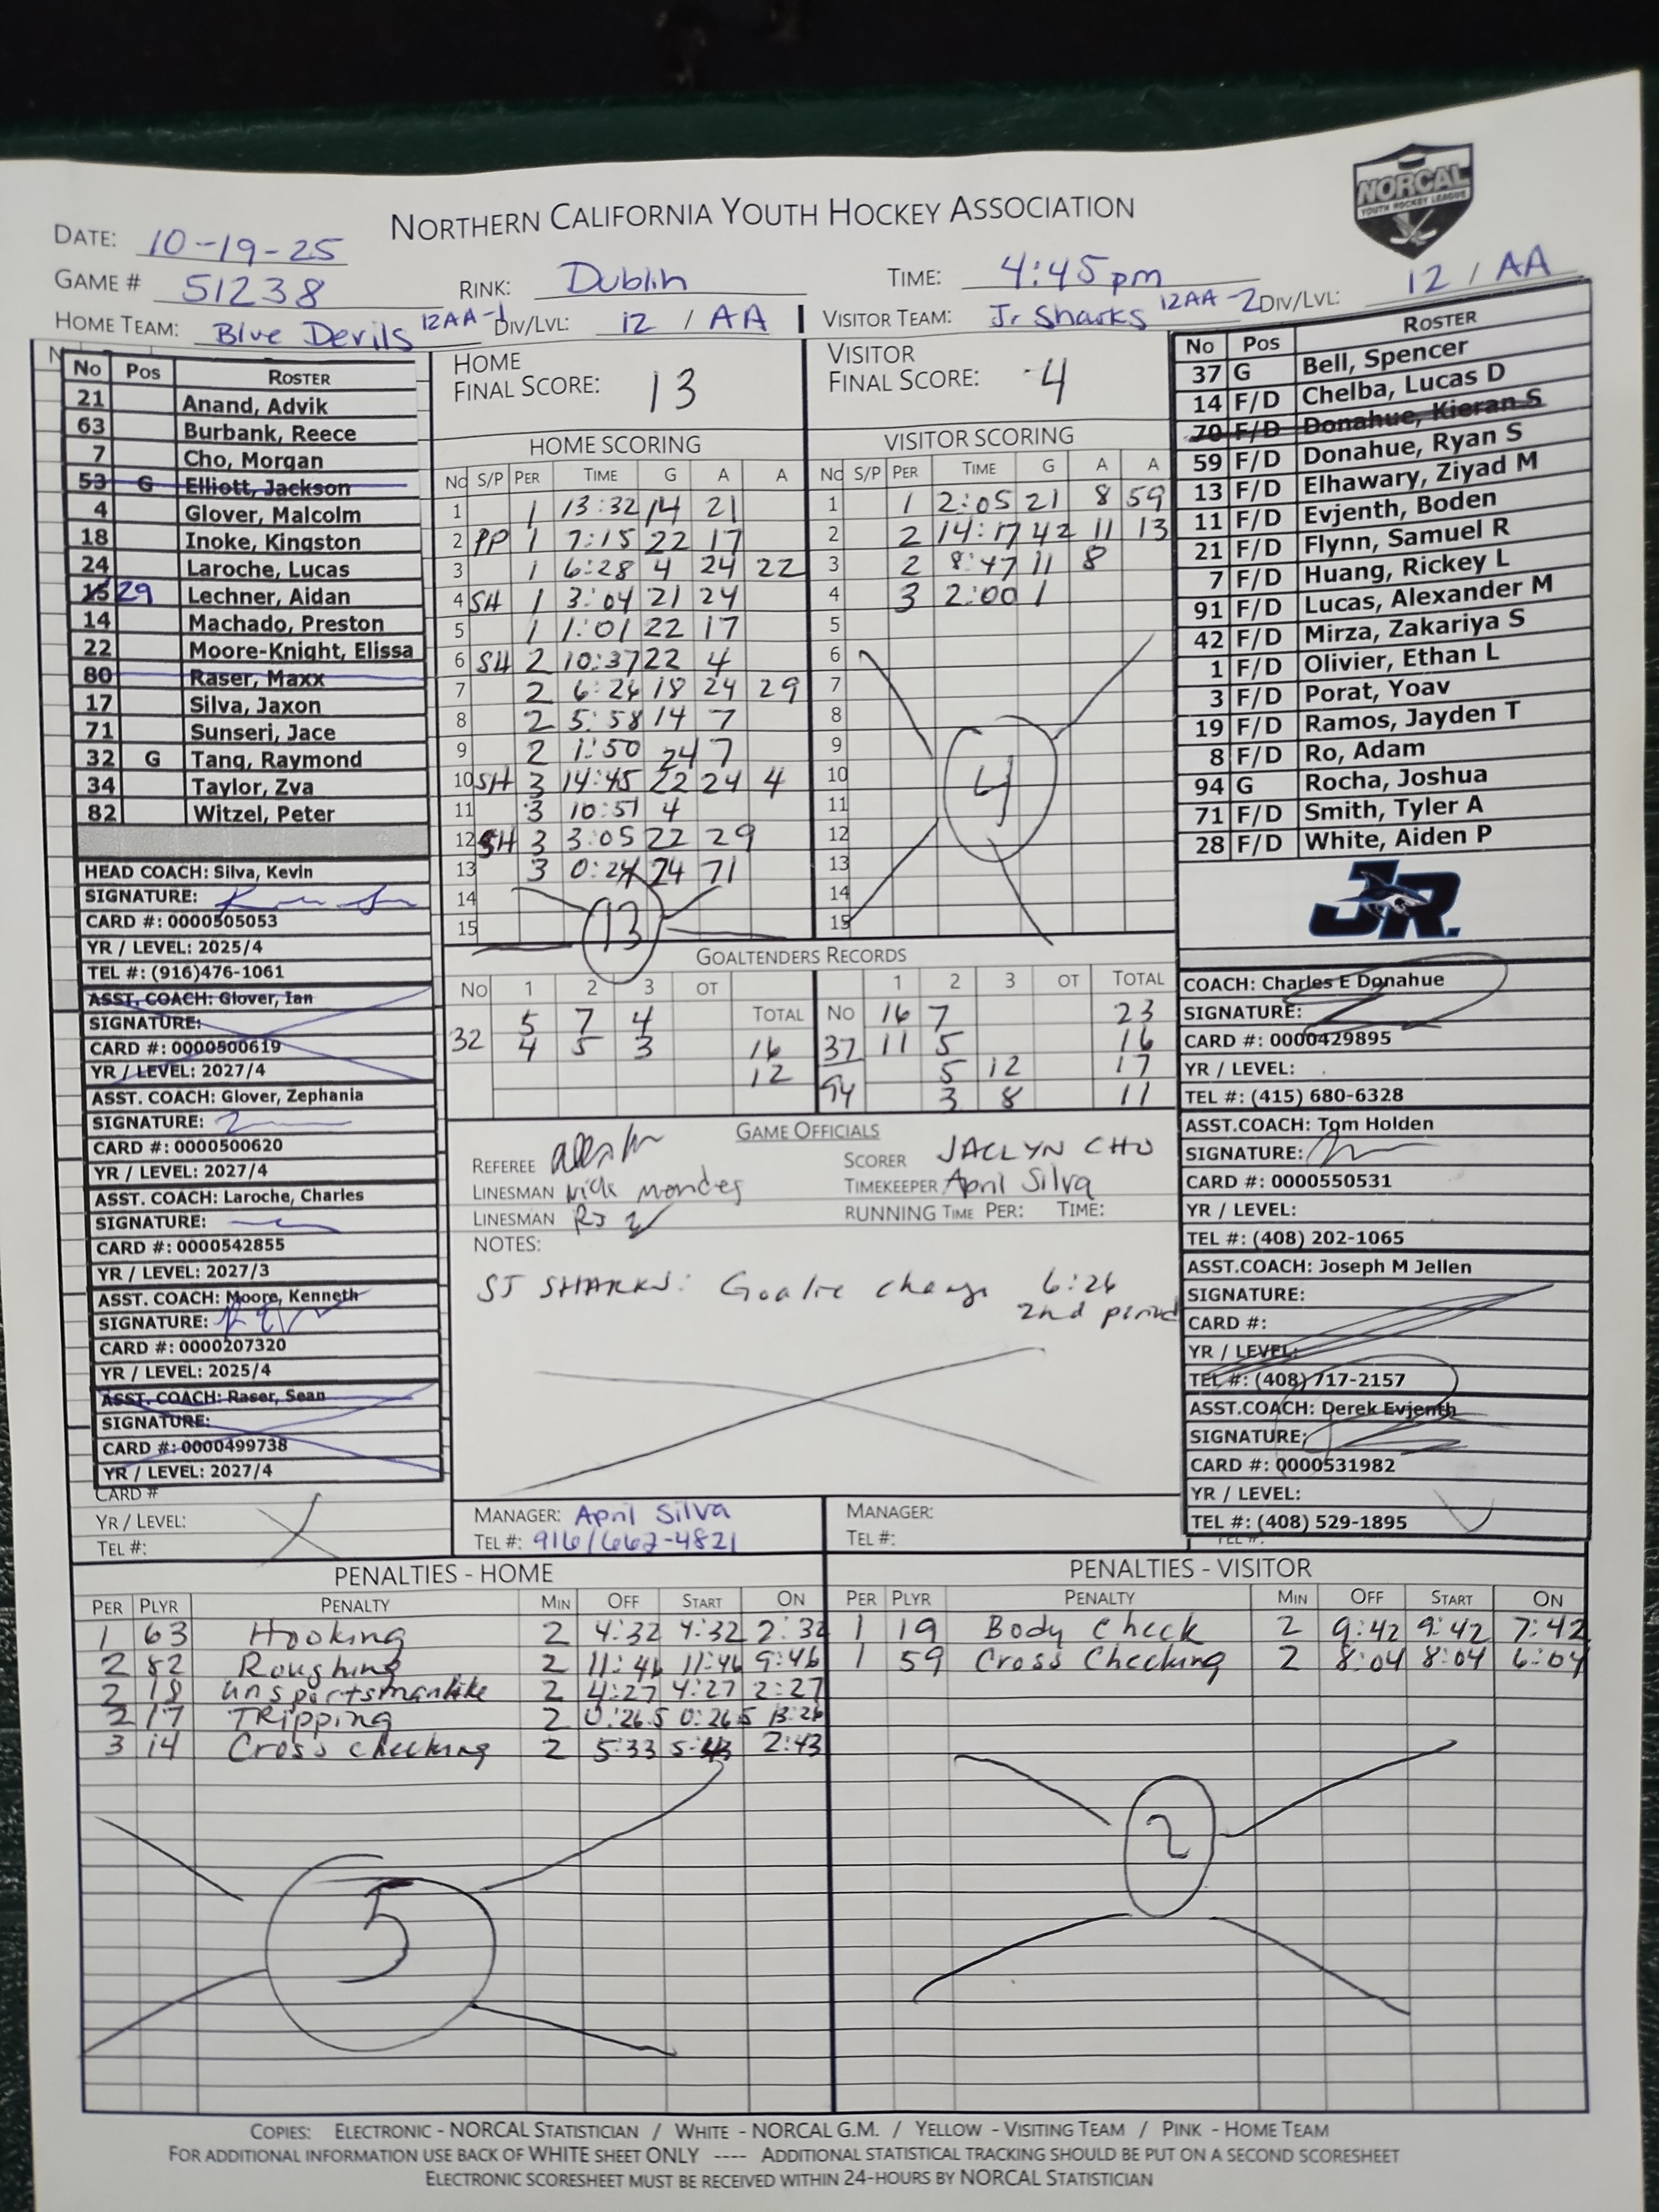 NORCAL
YOUTH HOCKEY LEAGUE
NORTHERN CALIFORNIA YOUTH HOCKEY ASSOCIATION
DATE: 10-19-25
GAME # 51238 RINK: Dublin TIME: 4:45pm
HOME TEAM: Blue Devils 12AA-1 DIV/LVL: 12 / AA
VISITOR TEAM: Jr Sharks 12AA-2 DIV/LVL: 12 / AA
No Pos ROSTER
21 Anand, Advik
63 Burbank, Reece
7 Cho, Morgan
53 G Elliott, Jackson
4 Glover, Malcolm
18 Inoke, Kingston
24 Laroche, Lucas
15 29 Lechner, Aidan
14 Machado, Preston
22 Moore-Knight, Elissa
80 Raser, Maxx
17 Silva, Jaxon
71 Sunseri, Jace
32 G Tang, Raymond
34 Taylor, Zva
82 Witzel, Peter
HEAD COACH: Silva, Kevin
SIGNATURE:
CARD #: 0000505053
YR / LEVEL: 2025/4
TEL #: (916)476-1061
ASST. COACH: Glover, Ian
SIGNATURE:
CARD #: 0000500619
YR / LEVEL: 2027/4
ASST. COACH: Glover, Zephania
SIGNATURE:
CARD #: 0000500620
YR / LEVEL: 2027/4
ASST. COACH: Laroche, Charles
SIGNATURE:
CARD #: 0000542855
YR / LEVEL: 2027/3
ASST. COACH: Moore, Kenneth
SIGNATURE:
CARD #: 0000207320
YR / LEVEL: 2025/4
ASST. COACH: Raser, Sean
SIGNATURE:
CARD #: 0000499738
YR / LEVEL: 2027/4
CARD #
YR / LEVEL:
TEL #:
HOME
FINAL SCORE: 13
HOME SCORING
NO S/P PER TIME G A A
1 1 13:32 14 21
2 PP 1 7:15 22 17
3 1 6:28 4 24 22
4 SH 1 3:04 21 24
5 1 1:01 22 17
6 SH 2 10:37 22 4
7 2 6:26 18 24 29
8 2 5:58 14 7
9 2 1:50 24 7
10 SH 3 14:45 22 24 4
11 3 10:51 4
12 SH 3 3:05 22 29
13 3 0:24 24 71
14
15
13
VISITOR
FINAL SCORE: 4
VISITOR SCORING
NO S/P PER TIME G A A
1 1 2:05 21 8 59
2 2 14:17 42 11 13
3 2 8:47 11 8
4 3 2:00 1
5
6
7
8
9
10
11
12
13
14
15
4
GOALTENDERS RECORDS
NO 1 2 3 OT TOTAL
32 5 7 4 16
4 5 3 12
NO 1 2 3 OT TOTAL
37 16 7 23
11 5 16
94 5 12 17
3 8 11
GAME OFFICIALS
REFEREE
SCORER JACLYN CHO
LINESMAN Nick Mendes
TIMEKEEPER April Silva
LINESMAN RJ
RUNNING TIME PER: TIME:
NOTES:
SJ SHARKS: Goalie change 6:26
2nd period
MANAGER: April Silva
TEL #: 916/662-4821
MANAGER:
TEL #:
No Pos ROSTER
37 G Bell, Spencer
14 F/D Chelba, Lucas D
70 F/D Donahue, Kieran S
59 F/D Donahue, Ryan S
13 F/D Elhawary, Ziyad M
11 F/D Evjenth, Boden
21 F/D Flynn, Samuel R
7 F/D Huang, Rickey L
91 F/D Lucas, Alexander M
42 F/D Mirza, Zakariya S
1 F/D Olivier, Ethan L
3 F/D Porat, Yoav
19 F/D Ramos, Jayden T
8 F/D Ro, Adam
94 G Rocha, Joshua
71 F/D Smith, Tyler A
28 F/D White, Aiden P
JR.
COACH: Charles E Donahue
SIGNATURE:
CARD #: 0000429895
YR / LEVEL:
TEL #: (415) 680-6328
ASST.COACH: Tom Holden
SIGNATURE:
CARD #: 0000550531
YR / LEVEL:
TEL #: (408) 202-1065
ASST.COACH: Joseph M Jellen
SIGNATURE:
CARD #:
YR / LEVEL:
TEL #: (408) 717-2157
ASST.COACH: Derek Evjenth
SIGNATURE:
CARD #: 0000531982
YR / LEVEL:
TEL #: (408) 529-1895
TEL #:
PENALTIES - HOME
PER PLYR PENALTY MIN OFF START ON
1 63 Hooking 2 4:32 4:32 2:32
2 82 Roughing 2 11:46 11:46 9:46
2 18 unsportsmanlike 2 4:27 4:27 2:27
2 17 TRipping 2 0:26.5 0:26.5 13:26
3 14 Cross checking 2 5:33 2:43
5
PENALTIES - VISITOR
PER PLYR PENALTY MIN OFF START ON
1 19 Body Check 2 9:42 9:42 7:42
1 59 Cross Checking 2 8:04 8:04 6:04
2
COPIES: ELECTRONIC - NORCAL STATISTICIAN / WHITE - NORCAL G.M. / YELLOW - VISITING TEAM / PINK - HOME TEAM
FOR ADDITIONAL INFORMATION USE BACK OF WHITE SHEET ONLY ---- ADDITIONAL STATISTICAL TRACKING SHOULD BE PUT ON A SECOND SCORESHEET
ELECTRONIC SCORESHEET MUST BE RECEIVED WITHIN 24-HOURS BY NORCAL STATISTICIAN